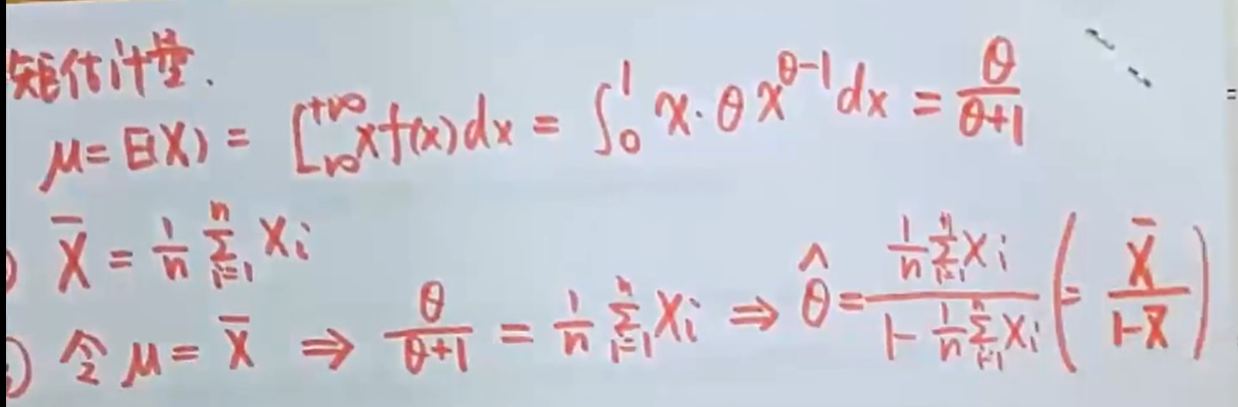 矩估计量.
μ = E(X) = ∫_{-∞}^{+∞} x f(x) dx = ∫_0^1 x · θ x^{θ-1} dx = \frac{θ}{θ+1}
) \bar{X} = \frac{1}{n} \sum_{i=1}^{n} X_i
) 令 μ = \bar{X} ⇒ \frac{θ}{θ+1} = \frac{1}{n} \sum_{i=1}^{n} X_i ⇒ \hat{θ} = \frac{\frac{1}{n} \sum_{i=1}^{n} X_i}{1 - \frac{1}{n} \sum_{i=1}^{n} X_i} ( = \frac{\bar{X}}{1 - \bar{X}} )